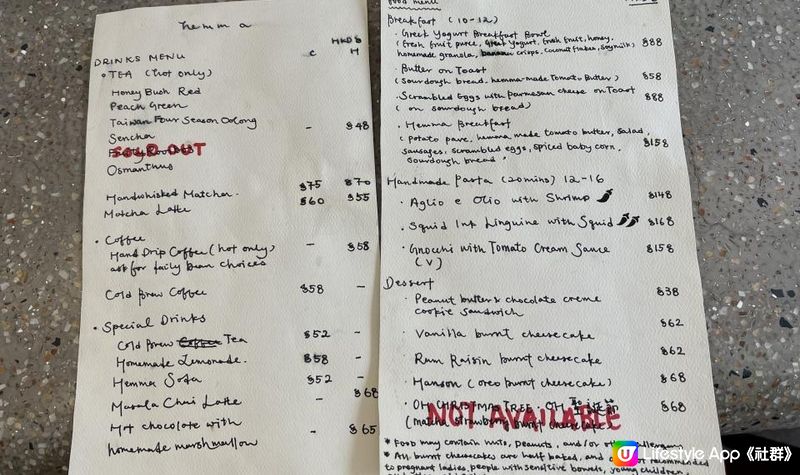 hemma
HKD$
DRINKS MENU C H
• TEA (hot only)
Honey Bush Red
Peach Green
Taiwan Four Season Oolong
Sencha - $48
SOLD OUT
Osmanthus
Handwhisked Matcha. $75 $70
Matcha Latte $60 $55
• Coffee
Hand Drip Coffee (hot only) - $58
ask for daily bean choices
Cold Brew Coffee $58 -
• Special Drinks
Cold Brew Coffee Tea $52 -
Homemade Lemonade. $58 -
Hemma Soda $52 -
Masala Chai Latte - $68
Hot chocolate with - $65
homemade marshmallow
Food menu
Breakfast (10-12)
· Greek Yogurt Breakfast Bowl
(fresh fruit puree, Greek yogurt, fresh fruit, honey, $88
homemade granola, banana crisps, coconut flakes, soymilk)
· Butter on Toast
(sourdough bread, hemma-made Tomato Butter) $58
· Scrambled Eggs with parmesan cheese on Toast $88
(on sourdough bread)
· Hemma Breakfast
(potato pave, hemma made tomato butter, salad, $158
sausages, scrambled eggs, spiced baby corn,
sourdough bread)
Handmade Pasta (20mins) 12-16
· Aglio e Olio with Shrimp $148
· Squid Ink Linguine with Squid $168
· Gnocchi with Tomato Cream Sauce $158
(V)
Dessert
· Peanut butter & chocolate creme $38
cookie sandwich
· Vanilla burnt cheesecake $62
· Rum Raisin burnt cheesecake $62
· Hanson (oreo burnt cheesecake) $68
· OH CHRISTMAS TREE OH 聖誕節 $68
(matcha strawberry burnt cheesecake
NOT AVAILABLE
* Food may contain nuts, peanuts, and/or other allergens
* All burnt cheesecakes are half baked, and are not recommended
to pregnant ladies, people with sensitive bowels, young children,
U Lifestyle App《社群》